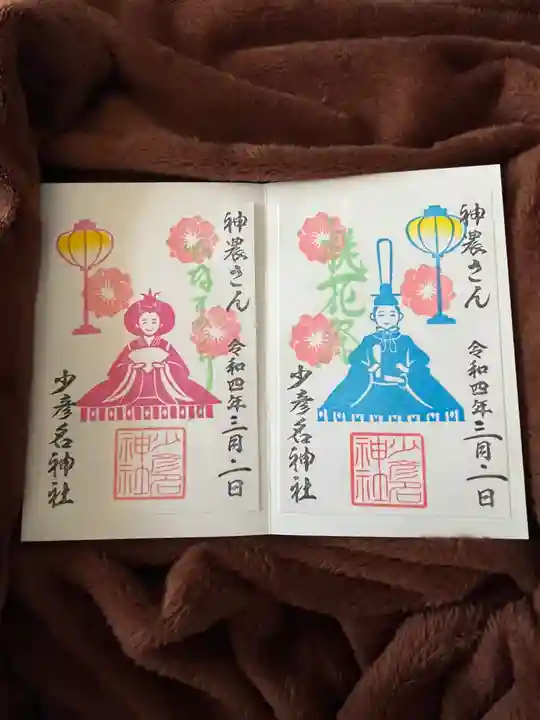 神農さん
令和四年三月一日
ひなまつり
少彦名神社
少彦名
神社
神農さん
令和四年三月一日
桃花祭
少彦名神社
少彦名
神社